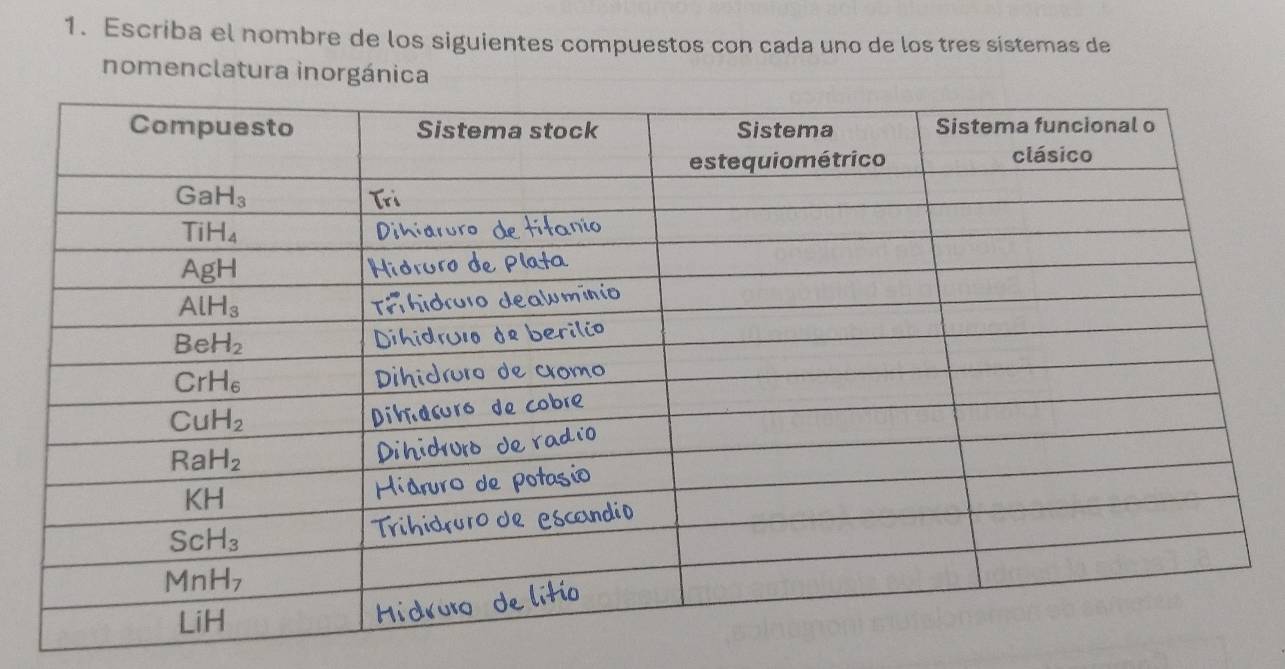 1. Escriba el nombre de los siguientes compuestos con cada uno de los tres sistemas de
nomenclatura inorgánica
Compuesto Sistema stock Sistema estequiométrico Sistema funcional o clásico
GaH₃ Tri
TiH₄ Dihidruro de titanio
AgH Hidruro de Plata
AlH₃ Trihidruro de aluminio
BeH₂ Dihidruro de berilio
CrH₆ Dihidruro de cromo
CuH₂ Dihidruro de cobre
RaH₂ Dihidruro de radio
KH Hidruro de potasio
ScH₃ Trihidruro de escandio
MnH₇
LiH Hidruro de litio